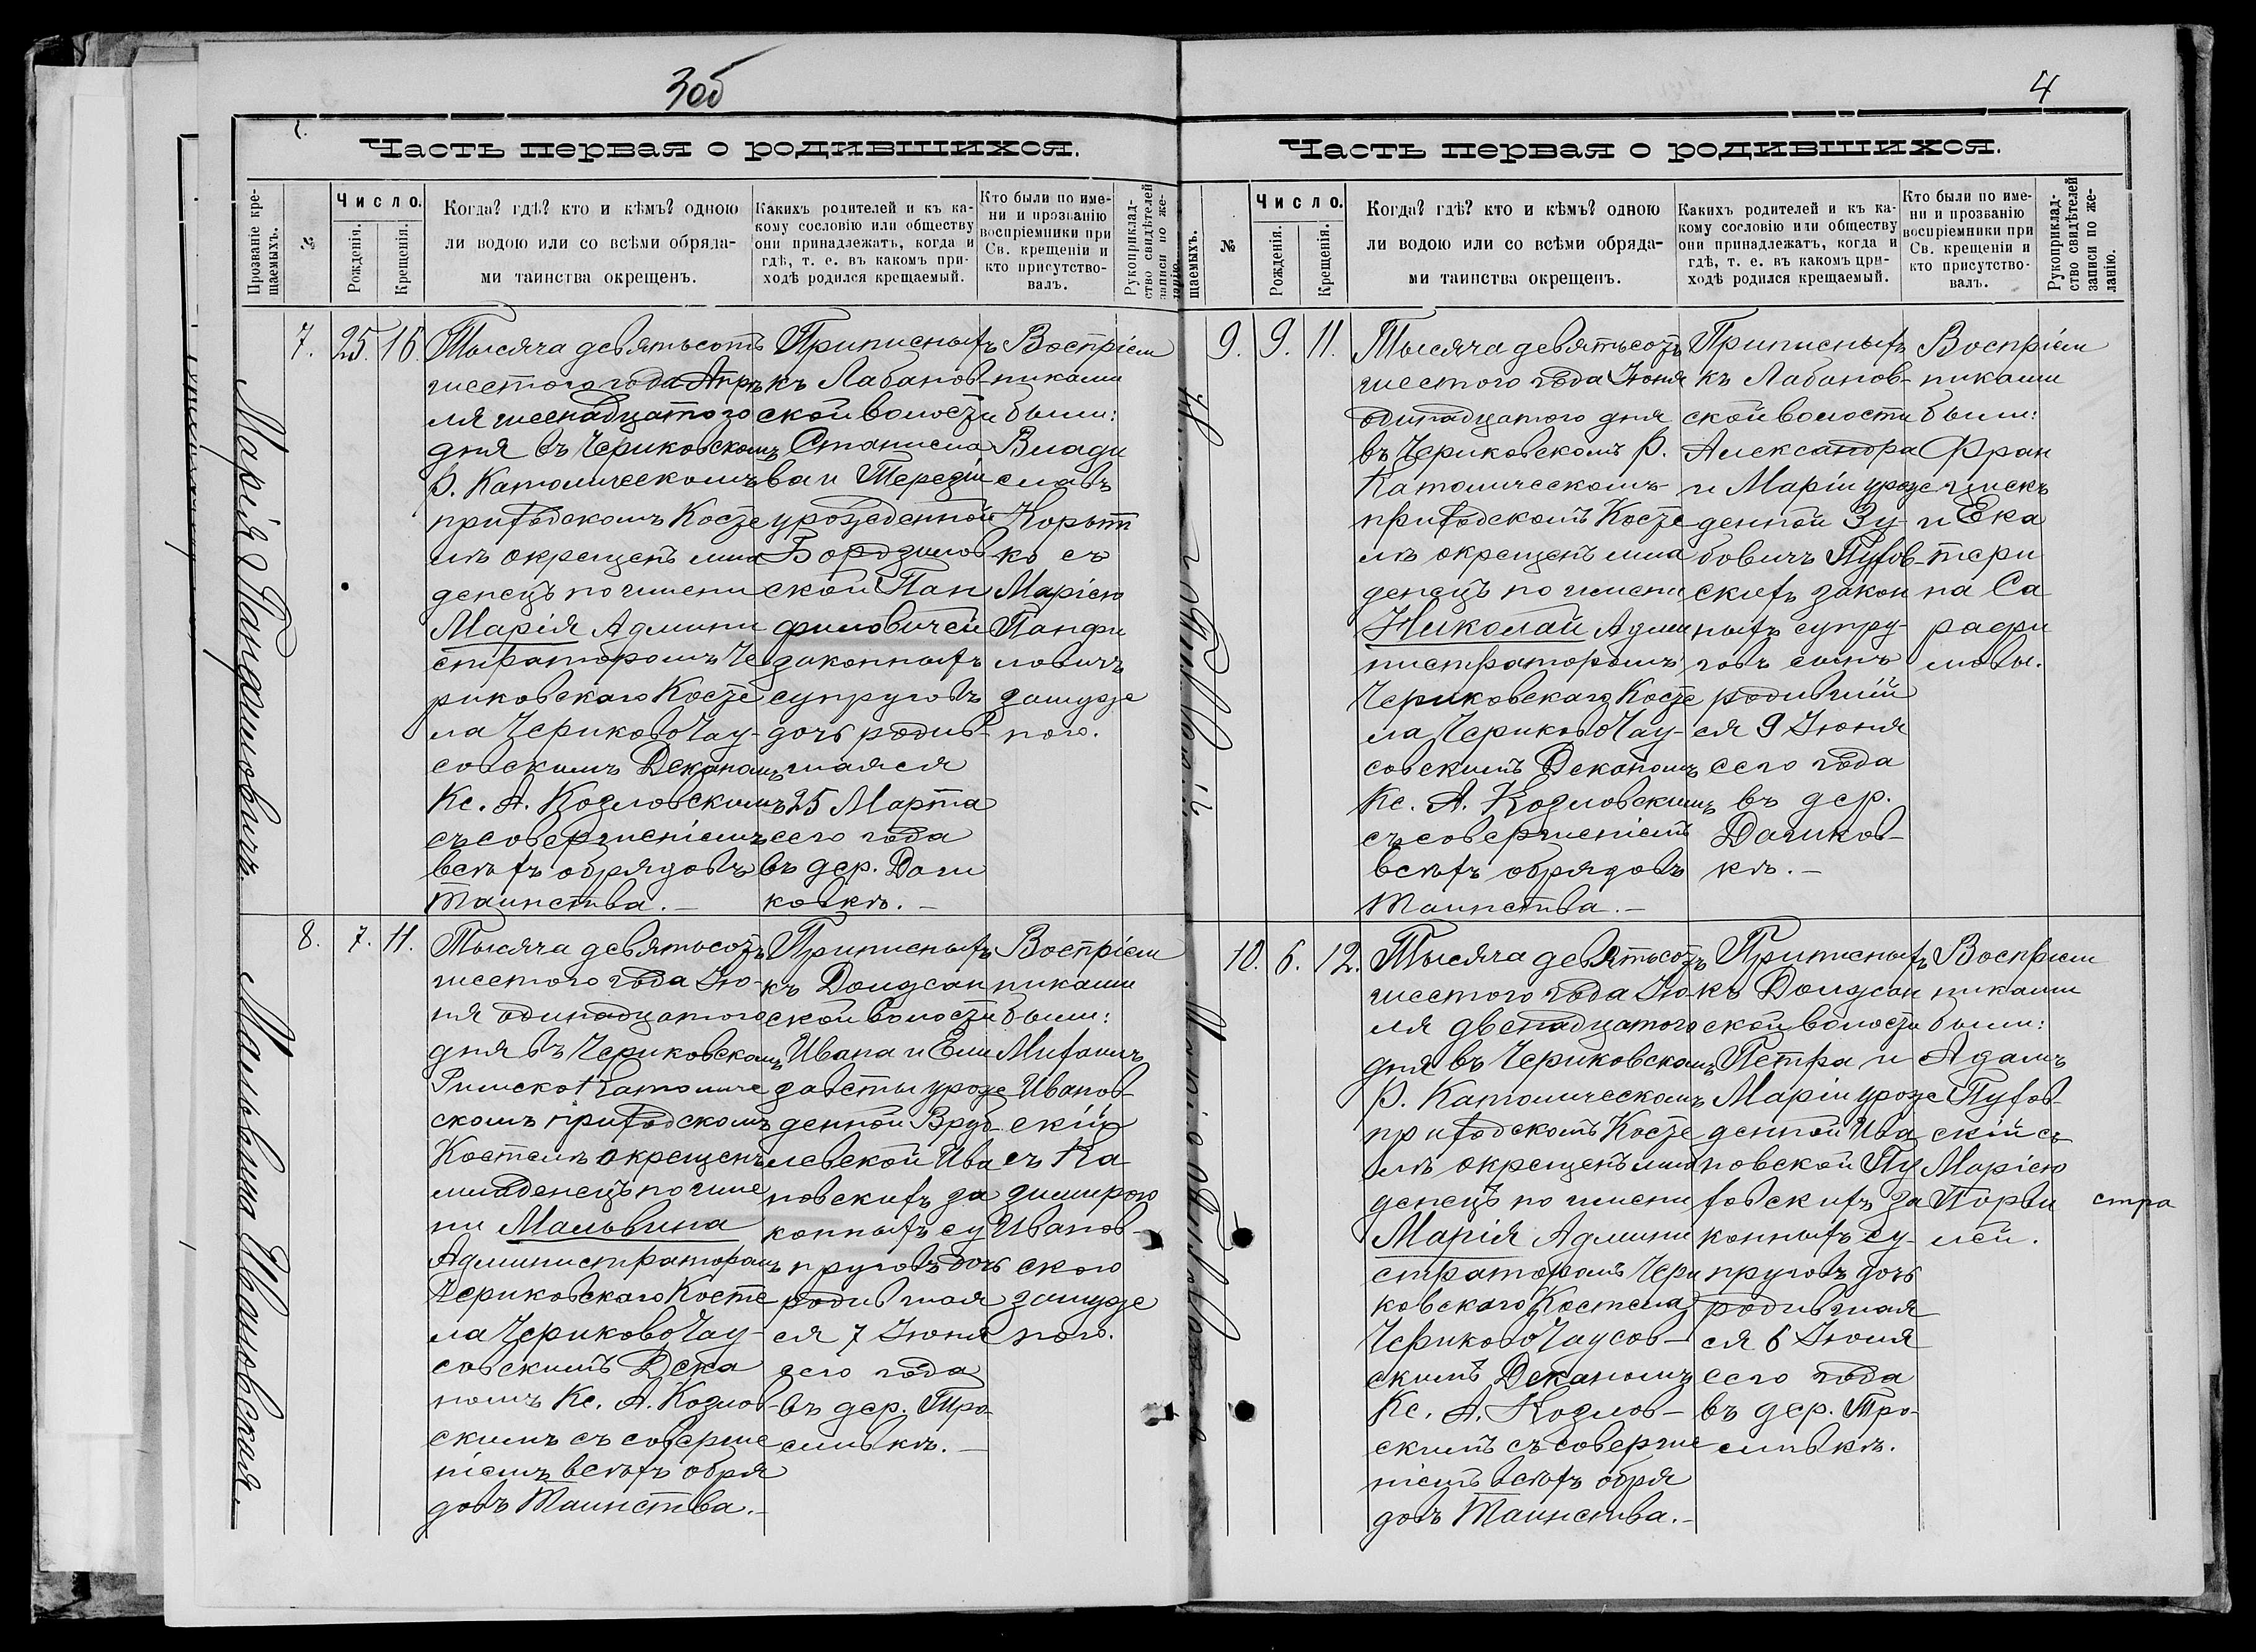 3об
Часть первая о родившихся.
Прозваніе крещаемыхъ.
№
Число.
Рожденія.
Крещенія.
Когда? гдѣ? кто и кѣмъ? одною
ли водою или со всѣми обряда-
ми таинства окрещенъ.
Какихъ родителей и къ ка-
кому сословію или обществу
они принадлежатъ, когда и
гдѣ, т. е. въ какомъ при-
ходѣ родился крещаемый.
Кто были по име-
ни и прозванію
воспріемники при
Св. крещеніи и
кто присутство-
валъ.
Рукоприклад-
ство свидѣтелей
записи по же-
ланію.
Марія Панфиловичъ.
7.
25.
16.
Тысяча девятьсотъ
шестого года Апрѣ
ля шеснадцатого
дня въ Чериковскомъ
Р. Католическомъ
приходскомъ Косте
лѣ окрещенъ мла
денецъ по имени
Марія Админи
страторомъ Че
риковскаго Косте
ла Чериково Чау-
совскимъ Деканомъ
Кс. А. Козловскимъ
съ совершеніемъ
всѣхъ обрядовъ
Таинства. —
Приписныхъ
къ Лабанов-
ской волости
Станисла
ва и Терезіи
урожденной
Бордзилов
ской Пан
филовичей
законныхъ
супруговъ
дочь родив-
шаяся
25 Марта
сего года
въ дер. Даши
ковкѣ. —
Воспріем
никами
были:
Влади
славъ
Корыт
ко съ
Маріею
Панфи
ловичъ
замуж
ного.
Мальвина Ивановская.
8.
7.
11.
Тысяча девятьсотъ
шестого года Ію-
ня одинадцатого
дня въ Чериковскомъ
Римско Католиче
скомъ приходскомъ
Костелѣ окрещенъ
младенецъ по име
ни Мальвина
Администраторомъ
Чериковскаго Косте
ла Чериково Чау-
совскимъ Дека
номъ Кс. А. Козлов-
скимъ съ соверше
ніемъ всѣхъ обря
довъ Таинства. —
Приписныхъ
къ Должан
ской волости
Ивана и Ели
заветы урож
денной Вруб-
левской Ива
новскихъ за
конныхъ су
пруговъ дочь
родившая
ся 7 Іюня
сего года
въ дер. Тро
силвкѣ. —
Воспріем
никами
были:
Михаилъ
Иванов-
скій
съ Ка
зимирою
Иванов-
ского
замуж
ного.
4
Часть первая о родившихся.
щаемыхъ.
№
Число.
Рожденія.
Крещенія.
Когда? гдѣ? кто и кѣмъ? одною
ли водою или со всѣми обряда-
ми таинства окрещенъ.
Какихъ родителей и къ ка-
кому сословію или обществу
они принадлежатъ, когда и
гдѣ, т. е. въ какомъ при-
ходѣ родился крещаемый.
Кто были по име-
ни и прозванію
воспріемники при
Св. крещеніи и
кто присутство-
валъ.
Рукоприклад-
ство свидѣтелей
записи по же-
ланію.
9.
9.
11.
Тысяча девятьсотъ
шестого года Іюня
одинадцатого дня
въ Чериковскомъ Р.
Католическомъ
приходскомъ Косте
лѣ окрещенъ мла
денецъ по имени
Николай Адми
нистраторомъ
Чериковскаго Косте
ла Чериково Чау-
совскимъ Деканомъ
Кс. А. Козловскимъ
съ совершеніемъ
всѣхъ обрядовъ
Таинства. —
Приписныхъ
къ Лабанов-
ской волости
Александра
и Маріи урож
денной Зу-
бовичъ Пухов-
скихъ закон
ныхъ супру-
говъ сынъ
родившій
ся 9 Іюня
сего года
въ дер.
Дашков-
кѣ. —
Воспріем
никами
были:
Фран
цискъ
и Ека
тери
на Са
рафи
мовы.
10.
6.
12.
Тысяча девятьсотъ
шестого года Ію-
ля двенадцатого
дня въ Чериковскомъ
Р. Католическомъ
приходскомъ Косте
лѣ окрещенъ мла
денецъ по имени
Марія Админи
страторомъ Чери
ковскаго Костела
Чериково Чаусов-
скимъ Деканомъ
Кс. А. Козлов-
скимъ съ соверше
ніемъ всѣхъ обря
довъ Таинства. —
Приписныхъ
къ Должан
ской волости
Петра и
Маріи урож
денной Ива
новской Пу
ховскихъ за
конныхъ су-
пруговъ дочь
родившая
ся 6 Іюля
сего года
въ дер. Тро-
силвкѣ.
Воспріем
никами
были:
Адамъ
Пухов-
скій съ
Маріею
Порви
лей.
стра